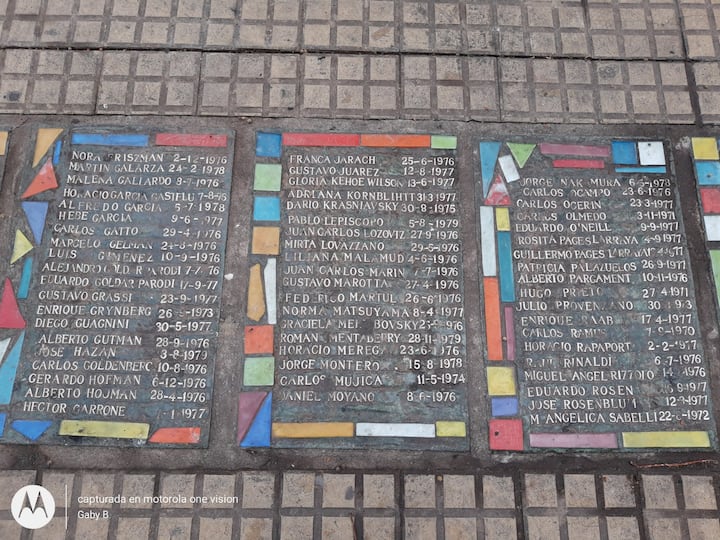 NORA FRISZMAN 2-12-1976
MARTIN GALARZA 24-2-1978
MALENA GALLARDO 8-7-1976
HORACIO GARCIA
ALFREDO GARCIA 9-7-1978
HEBE GARCIA 9-6-1977
CARLOS GATTO 29-4-1976
MARCELO GELMAN 24-8-1976
LUIS GIMENEZ 10-9-1976
ALEJANDRO GOLDAR PARODI 7-7-76
EDUARDO GOLDAR PARODI 17-9-77
GUSTAVO GRASSI 23-9-1977
ENRIQUE GRYNBERG 26-9-1973
DIEGO GUAGNINI 30-5-1977
ALBERTO GUTMAN 28-9-1976
JOSE HAZAN 3-8-1979
CARLOS GOLDENBERG 10-8-1976
GERARDO HOFMAN 6-12-1976
ALBERTO HOJMAN 28-4-1976
HECTOR 1977
FRANCA JARACH 25-6-1976
GUSTAVO JUAREZ 12-8-1977
GLORIA KEHOE WILSON 13-6-1977
ADRIANA KORNBLIHTT 31-3-1977
DARIO KRASNIAVSKY 30-9-1975
PABLO LEPISCOPO 5-8-1979
JUAN CARLOS LOZOVIZ 27-9-1976
MIRTA LOVAZZANO 29-5-1976
LILIANA MALAMUD 4-6-1976
JUAN CARLOS MARIN 7-7-1976
GUSTAVO MAROTTA 27-4-1976
FEDERICO MARTUL 26-6-1976
NORMA MATSUYAMA 8-4-1977
GRACIELA 1976
ROMAN MENTABERRY 28-11-1979
HORACIO MEREGA 23-6-1976
JORGE MONTERO 15-8-1978
CARLOS MUJICA 11-5-1974
DANIEL MOYANO 8-6-1976
JORGE NAKAMURA 6-5-1978
CARLOS OCAMPO 23-6-1976
CARLOS OCERIN 23-3-1977
CARLOS OLMEDO 3-11-1971
EDUARDO O'NEILL 9-9-1977
ROSITA PAGES LARRAYA 4-9-1977
GUILLERMO PAGES LARRAYA
PATRICIA PALAZUELOS 26-9-1977
ALBERTO PARGAMENT 10-11-1976
HUGO PRIETO 27-4-1971
JULIO PROVENZANO 30-8-1973
ENRIQUE RAAB 17-4-1977
CARLOS RAMUS 7-9-1970
HORACIO RAPAPORT 2-2-1977
RAUL RINALDI 6-7-1976
MIGUEL ANGEL RIZZOLO 1976
EDUARDO ROSEN 1977
JOSE ROSENBLUM 12-9-1977
M. ANGELICA SABELLI 22-8-1972
capturada en motorola one vision
Gaby B